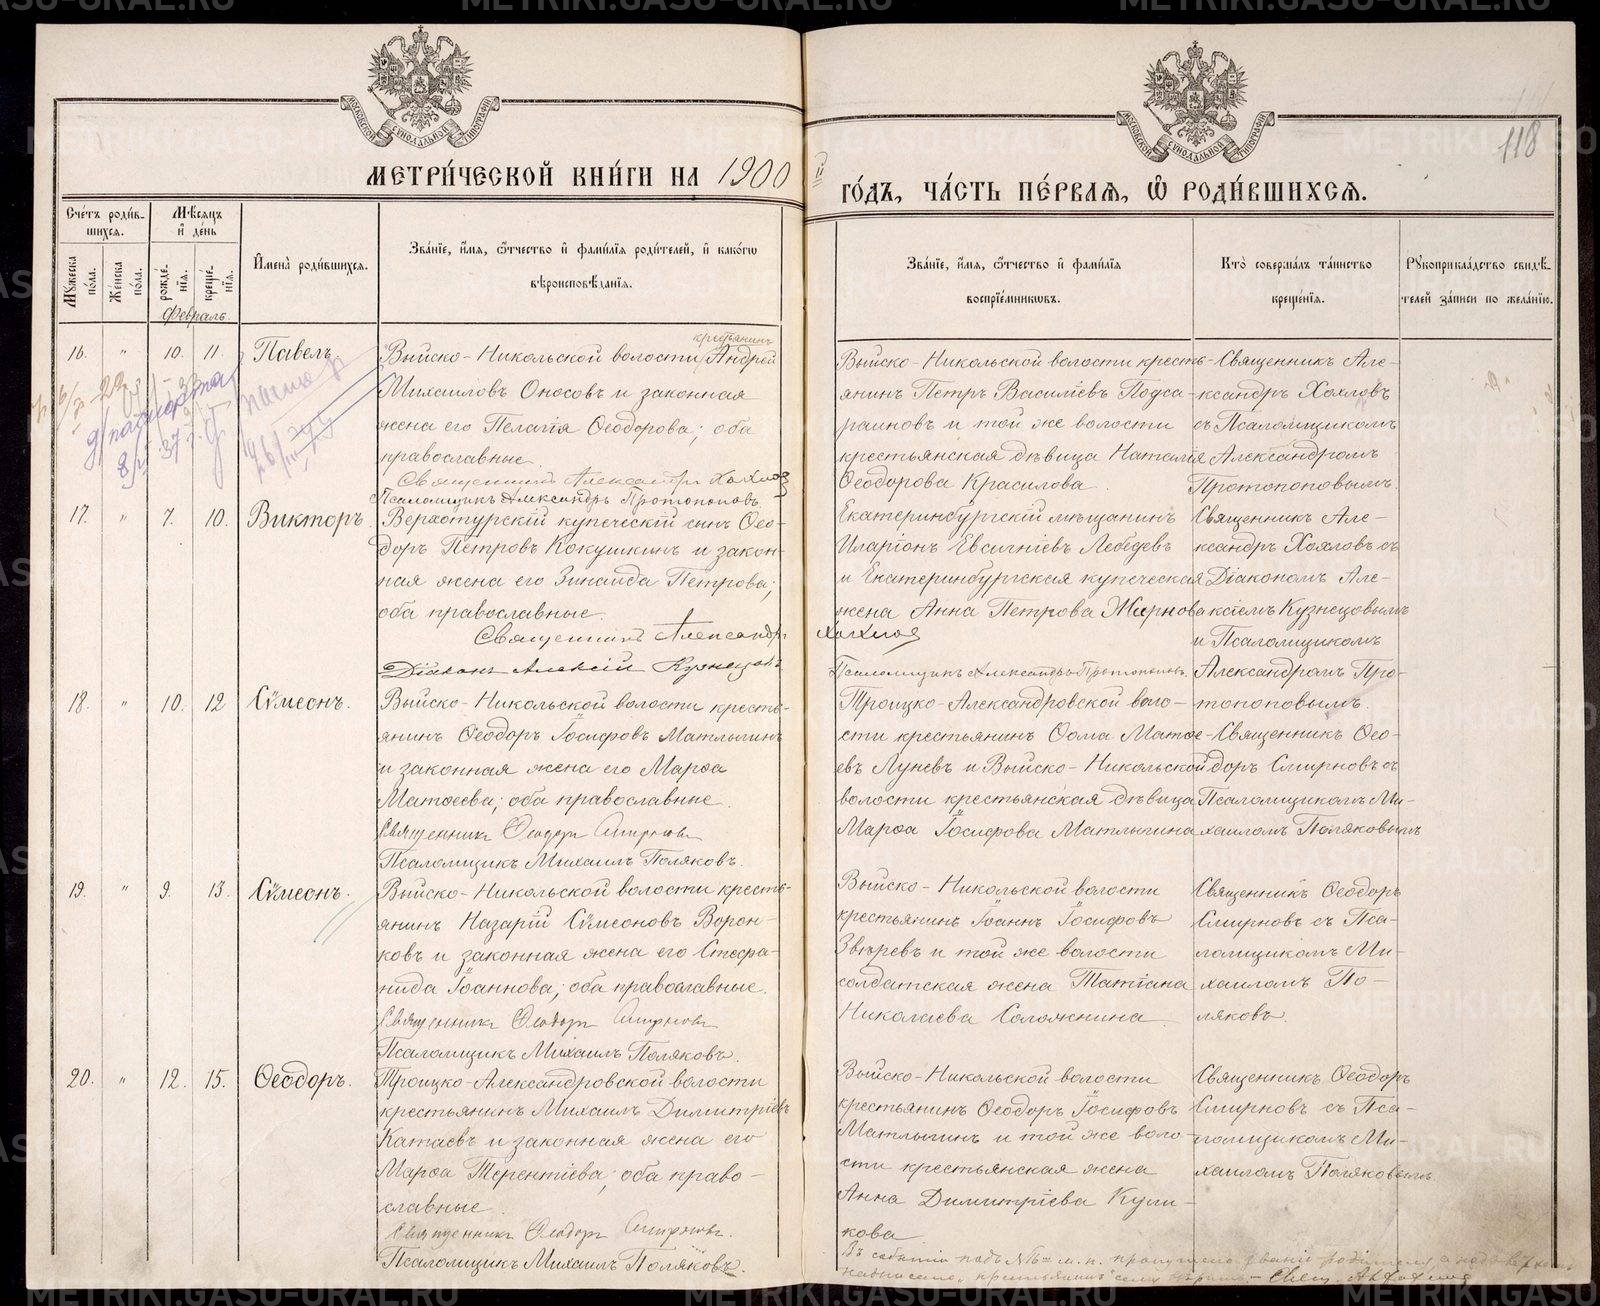 118
МЕТРИ́ЧЕСКОЙ КНИ́ГИ НА 1900й ГО́ДЪ, ЧА́СТЬ ПЕ́РВАЯ, Ѡ РОДИ́ВШИХСЯ.
МОСКОВСКОЙ СѴНОДАЛЬНОЙ ТИПОГРАФІИ
МОСКОВСКОЙ СѴНОДАЛЬНОЙ ТИПОГРАФІИ
Сче́тъ роди́вшихся.
Му́жеска по́ла.
Же́нска по́ла.
Мѣсяцъ и де́нь
рожде́нія.
креще́нія.
Имена̀ роди́вшихся.
Зва́ніе, и́мя, ѻ́тчество и фами́лія роди́телей, и како́гѡ вѣроисповѣ́данія.
Зва́ніе, и́мя, ѻ́тчество и фами́лія воспріе́мникѡвъ.
Кто̀ соверша́лъ та́инство креще́нія.
Рꙋкоприкла́дство свидѣ́телей за́писи по жела́нію.
Февраль.
16. " 10. 11. Павелъ
крестьянинъ
Выйско-Никольской волости Андрей
Михаиловъ Оносовъ и законная
жена его Пелагія Ѳеодорова; оба
православные.
Священникъ Александръ Хохловъ
Псаломщикъ Александръ Протопоповъ
Выйско-Никольской волости кресть-
янинъ Петръ Василіевъ Подса-
раиновъ и той же волости
крестьянская дѣвица Наталія
Ѳеодорова Красилова.
Священникъ Але-
ксандръ Хохловъ
съ Псаломщикомъ
Александромъ
Протопоповымъ.
17. " 7. 10. Викторъ.
Верхотурскій купеческій сынъ Ѳео-
доръ Петровъ Кокушкинъ и закон-
ная жена его Зинаида Петрова;
оба православные.
Священникъ Александръ Хохловъ
Діаконъ Алексій Кузнецовъ
Псаломщикъ Александръ Протопоповъ.
Екатеринбургскій мѣщанинъ
Иларіонъ Евсигніевъ Лебедевъ
и Екатеринбургская купеческая
жена Анна Петрова Жирнова
Священникъ Але-
ксандръ Хохловъ съ
Діакономъ Але-
ксіемъ Кузнецовымъ
и Псаломщикомъ
Александромъ Про-
топоповымъ.
18. " 10. 12 Сѷмеонъ.
Выйско-Никольской волости кресть-
янинъ Ѳеодоръ Іосифовъ Матлыгинъ
и законная жена его Марѳа
Матѳеева; оба православные.
Священникъ Ѳеодоръ Смирновъ
Псаломщикъ Михаилъ Поляковъ.
Троицко-Александровской воло-
сти крестьянинъ Ѳома Матѳе-
евъ Луневъ и Выйско-Никольской
волости крестьянская дѣвица
Марѳа Іосифова Матлыгина
Священникъ Ѳео-
доръ Смирновъ съ
Псаломщикомъ Ми-
хаиломъ Поляковымъ
19. " 9. 13. Сѷмеонъ.
Выйско-Никольской волости кресть-
янинъ Назарій Сѷмеоновъ Ворон-
ковъ и законная жена его Стефа-
нида Іоаннова; оба православные.
Священникъ Ѳеодоръ Смирновъ
Псаломщикъ Михаилъ Поляковъ.
Выйско-Никольской волости
крестьянинъ Іоаннъ Іосифовъ
Звѣревъ и той же волости
солдатская жена Татіана
Николаева Саложнина
Священникъ Ѳеодоръ
Смирновъ съ Пса-
ломщикомъ Ми-
хаиломъ По-
ляковъ.
20. " 12. 15. Ѳеодоръ.
Троицко-Александровской волости
крестьянинъ Михаилъ Димитріевъ
Катаевъ и законная жена его
Марѳа Терентіева; оба право-
славные.
Священникъ Ѳеодоръ Смирновъ.
Псаломщикъ Михаилъ Поляковъ.
Выйско-Никольской волости
крестьянинъ Ѳеодоръ Іосифовъ
Матлыгинъ и той же воло-
сти крестьянская жена
Анна Димитріева Кули-
кова
Священникъ Ѳеодоръ
Смирновъ съ Пса-
ломщикомъ Ми-
хаиломъ Поляковымъ
METRIKI.GASO-URAL.RU